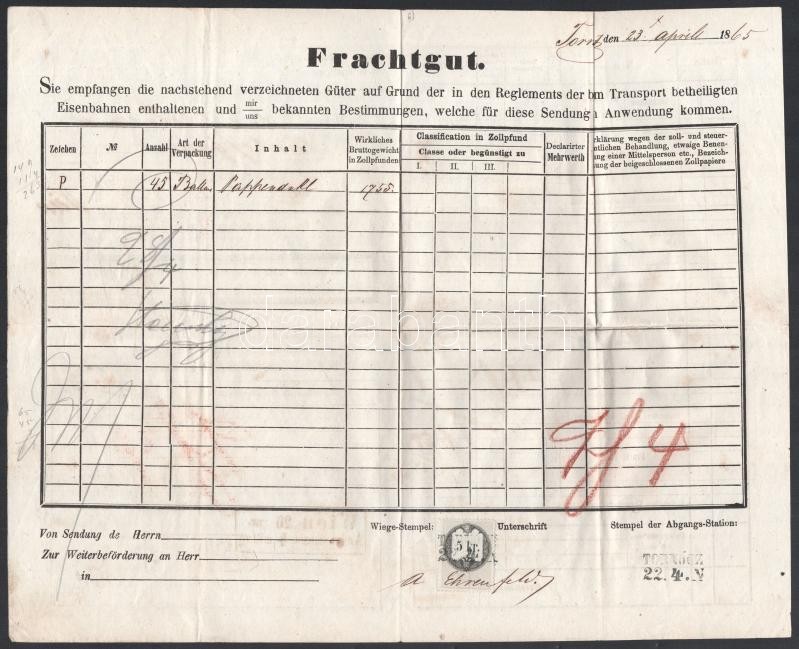 den 23 April 1865
Frachtgut.
Sie empfangen die nachstehend verzeichneten Güter auf Grund der in den Reglements der bm Transport betheiligten
Eisenbahnen enthaltenen und mir/uns bekannten Bestimmungen, welche für diese Sendung Anwendung kommen.
Zeichen № Anzahl Art der Verpackung Inhalt Wirkliches Bruttogewicht in Zollpfunden Classification in Zollpfund Declarirter Mehrwerth rklärung wegen der zoll- und steuer-
ntlichen Behandlung, etwaige Benen-
ung einer Mittelsperson etc., Bezeich-
ung der beigeschlossenen Zollpapiere
Classe oder begünstigt zu
I. II. III.
P 45 Ballen 1755.
4
darabanth
4
Von Sendung de Herrn
Wiege-Stempel: Unterschrift Stempel der Abgangs-Station:
Zur Weiterbeförderung an Herr
5 kr.
TORNÓCZ
22.4.N
in
A Ehrenfeld